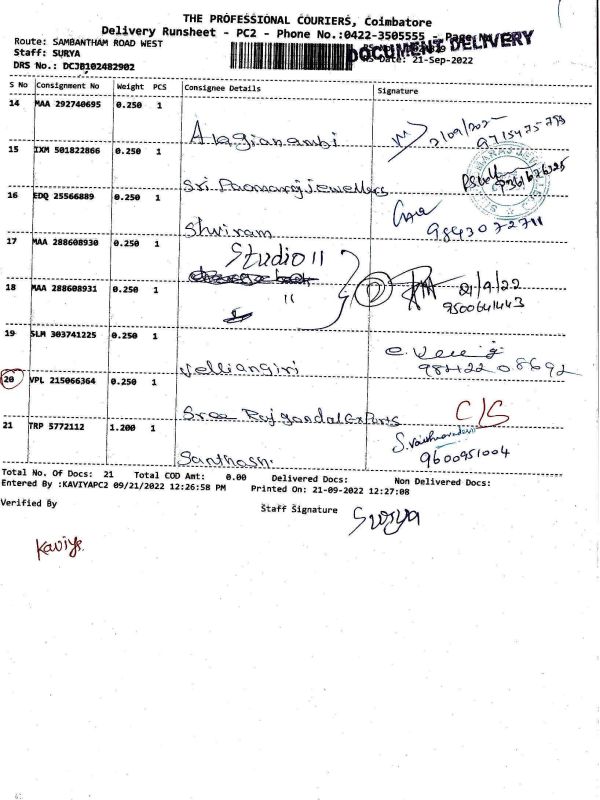 THE PROFESSIONAL COURIERS, Coimbatore
Delivery Runsheet - PC2 - Phone No.:0422-3505555 - Page No
Route: SAMBANTHAM ROAD WEST
DOCUMENT DELIVERY
Staff: SURYA
DRS No.: DCJB102482902
Date: 21-Sep-2022
S No Consignment No Weight PCS Consignee Details Signature
14 MAA 292740695 0.250 1
Alagianambi
9715475799
15 IXM 501822866 0.250 1
Sri Paamaraj Jewellers
16 EDQ 25566889 0.250 1
Shriram
9843072711
17 MAA 288608930 0.250 1
Studio 11
18 MAA 288608931 0.250 1
11
21/9/22
9500641443
19 SLM 303741225 0.250 1
Velliangiri
9842208692
20 VPL 215066364 0.250 1
Sree Rajgandal Exports
C/S
21 TRP 5772112 1.200 1
Santhosh.
9600951004
Total No. Of Docs: 21 Total COD Amt: 0.00 Delivered Docs: Non Delivered Docs:
Entered By :KAVIYAPC2 09/21/2022 12:26:58 PM Printed On: 21-09-2022 12:27:08
Verified By Staff Signature
Surya
Kaviya